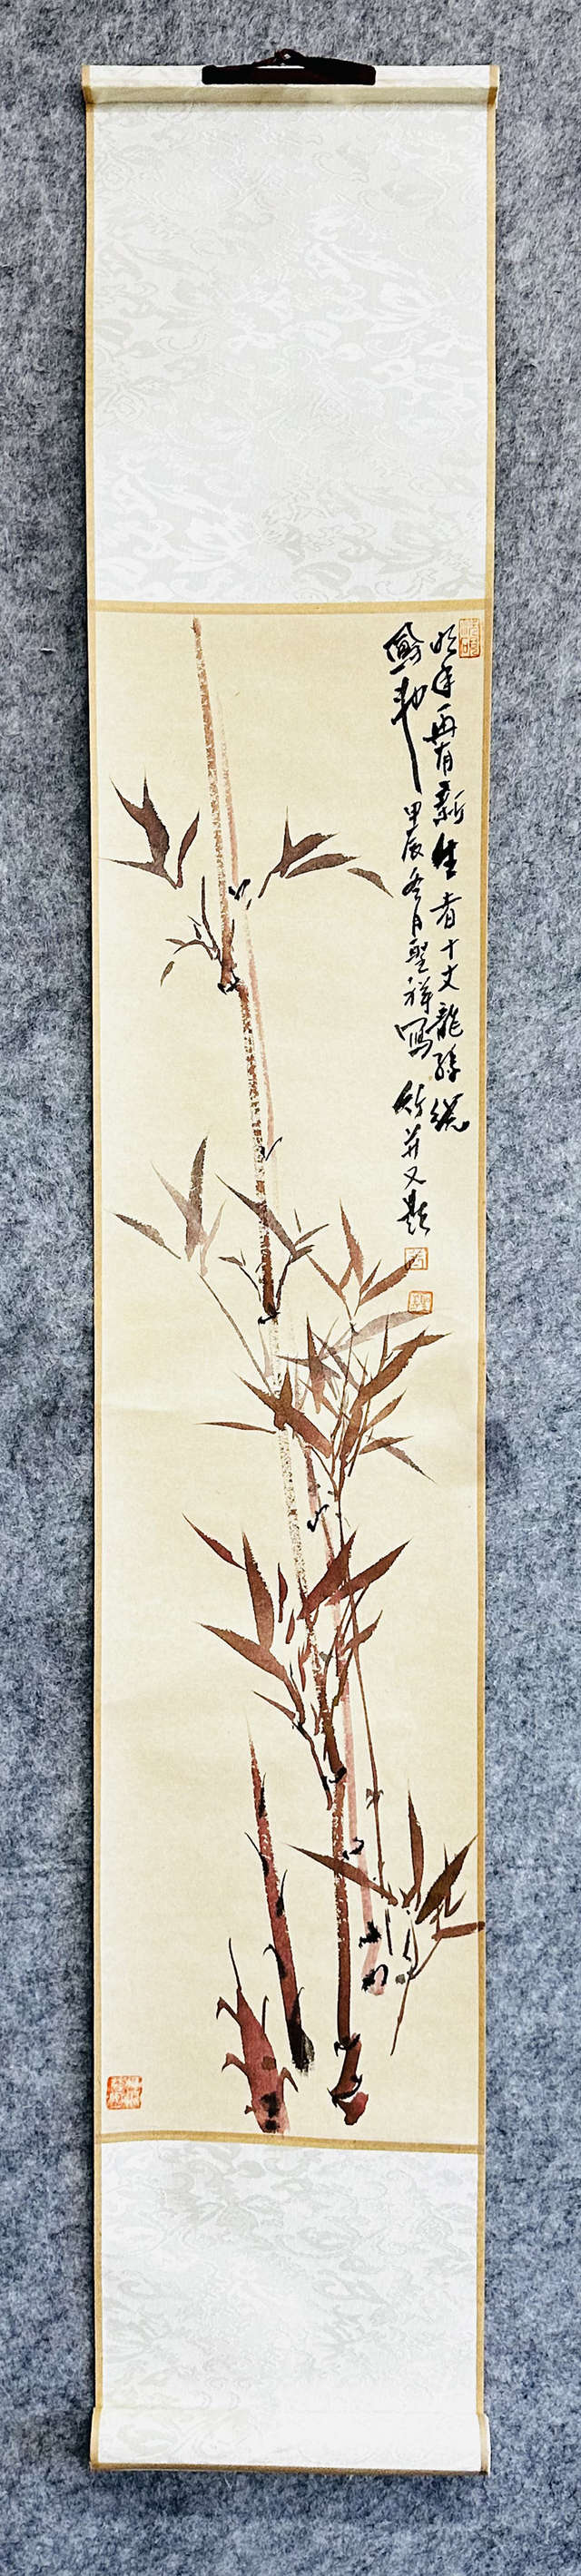 明年再有新生者十丈龍孫繞
鳳池
甲辰冬月聖祥寫竹并又題